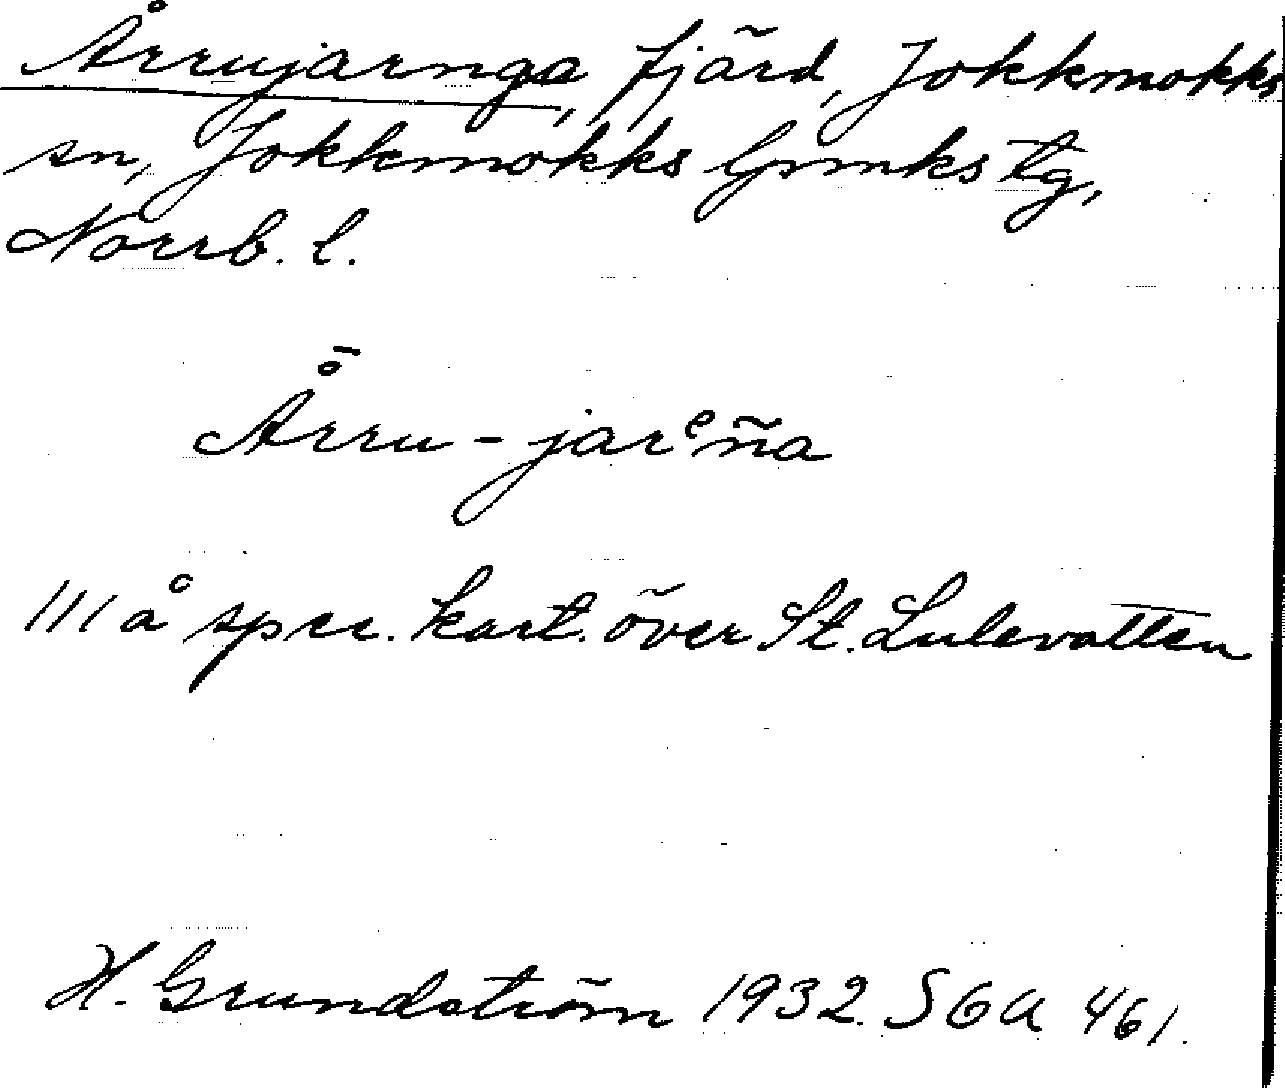 Årrujarnga, fjärd, Jokkmokks
sn, Jokkmokks lpmks tg,
Norrb. l.
Å̄rru-jarᵉña
111 å spec. kart. över St. Lulevatten
H. Grundström 1932. SGA 461.